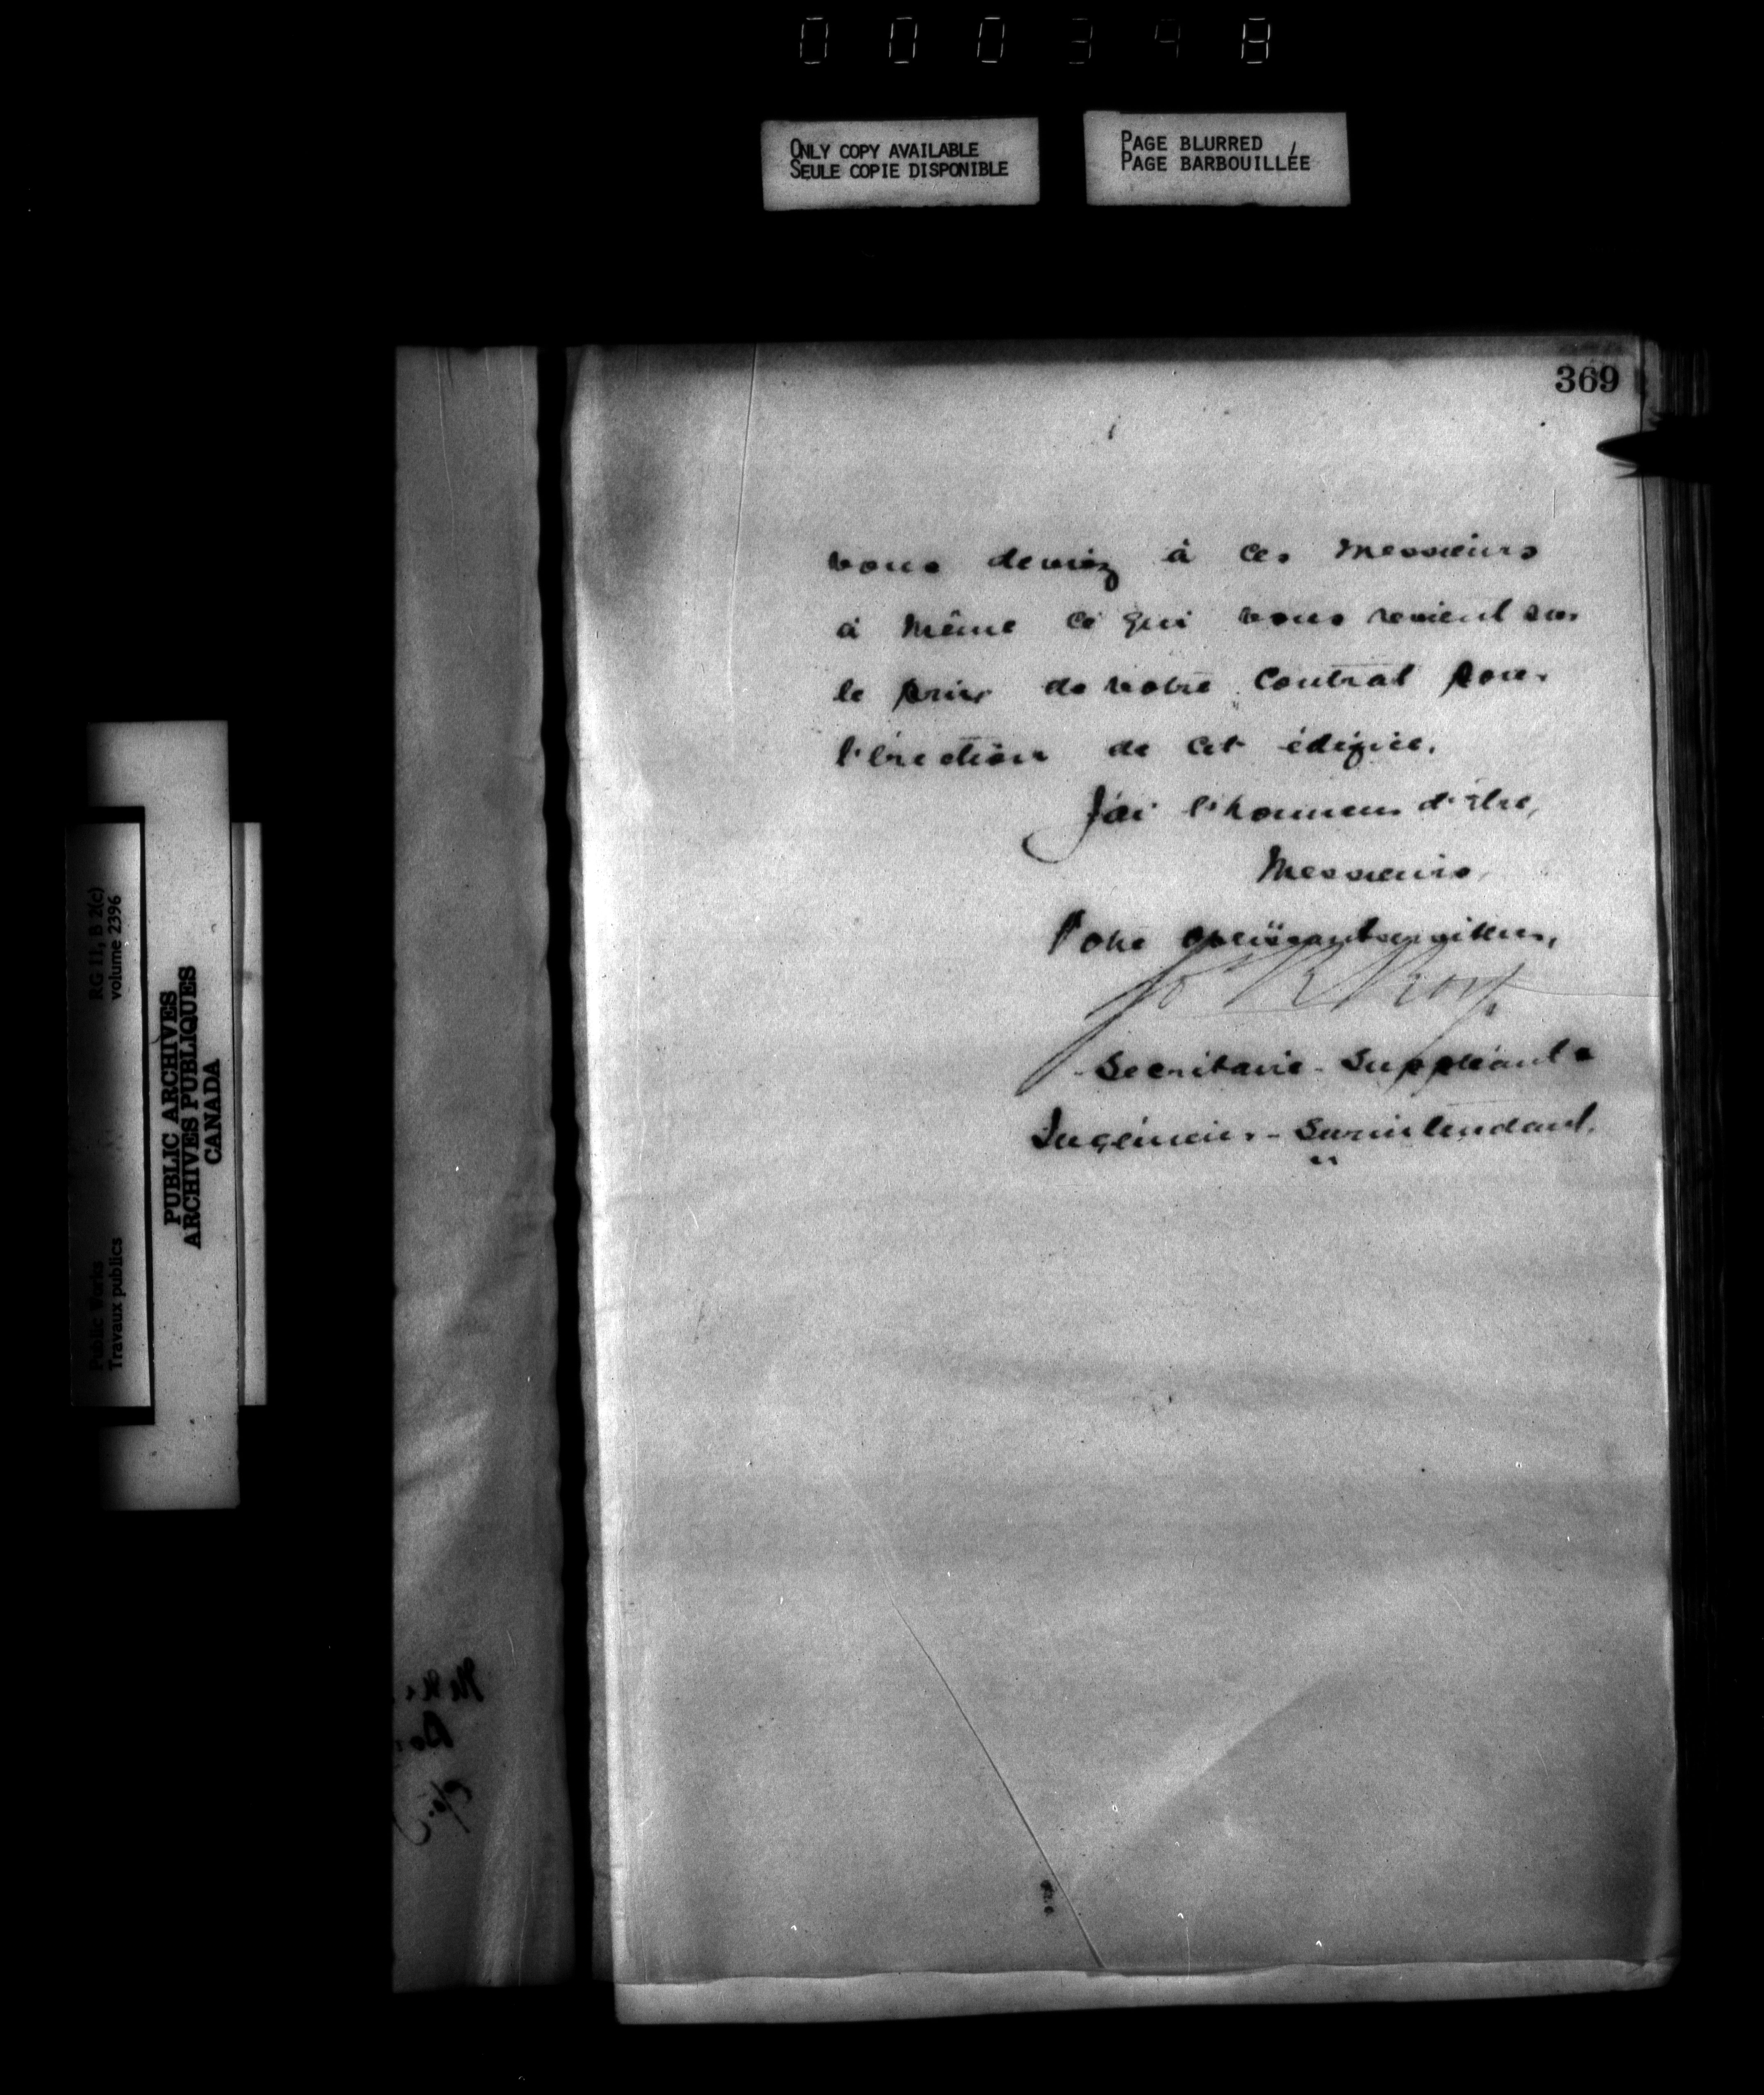 000398
ONLY COPY AVAILABLE
SEULE COPIE DISPONIBLE
PAGE BLURRED
PAGE BARBOUILLÉE
369
vous deviez à ces Messieurs
à même ce qui vous revient sur
le prix de votre Contrat pour
l'érection de cet édifice.
J'ai l'honneur d'être,
Messieurs,
Votre obéissant serviteur,
Roy
Secrétaire-Suppléant &
Ingénieur-Surintendant.
RG 11, B 2(c)
volume 2396
Public Works
Travaux publics
PUBLIC ARCHIVES
ARCHIVES PUBLIQUES
CANADA